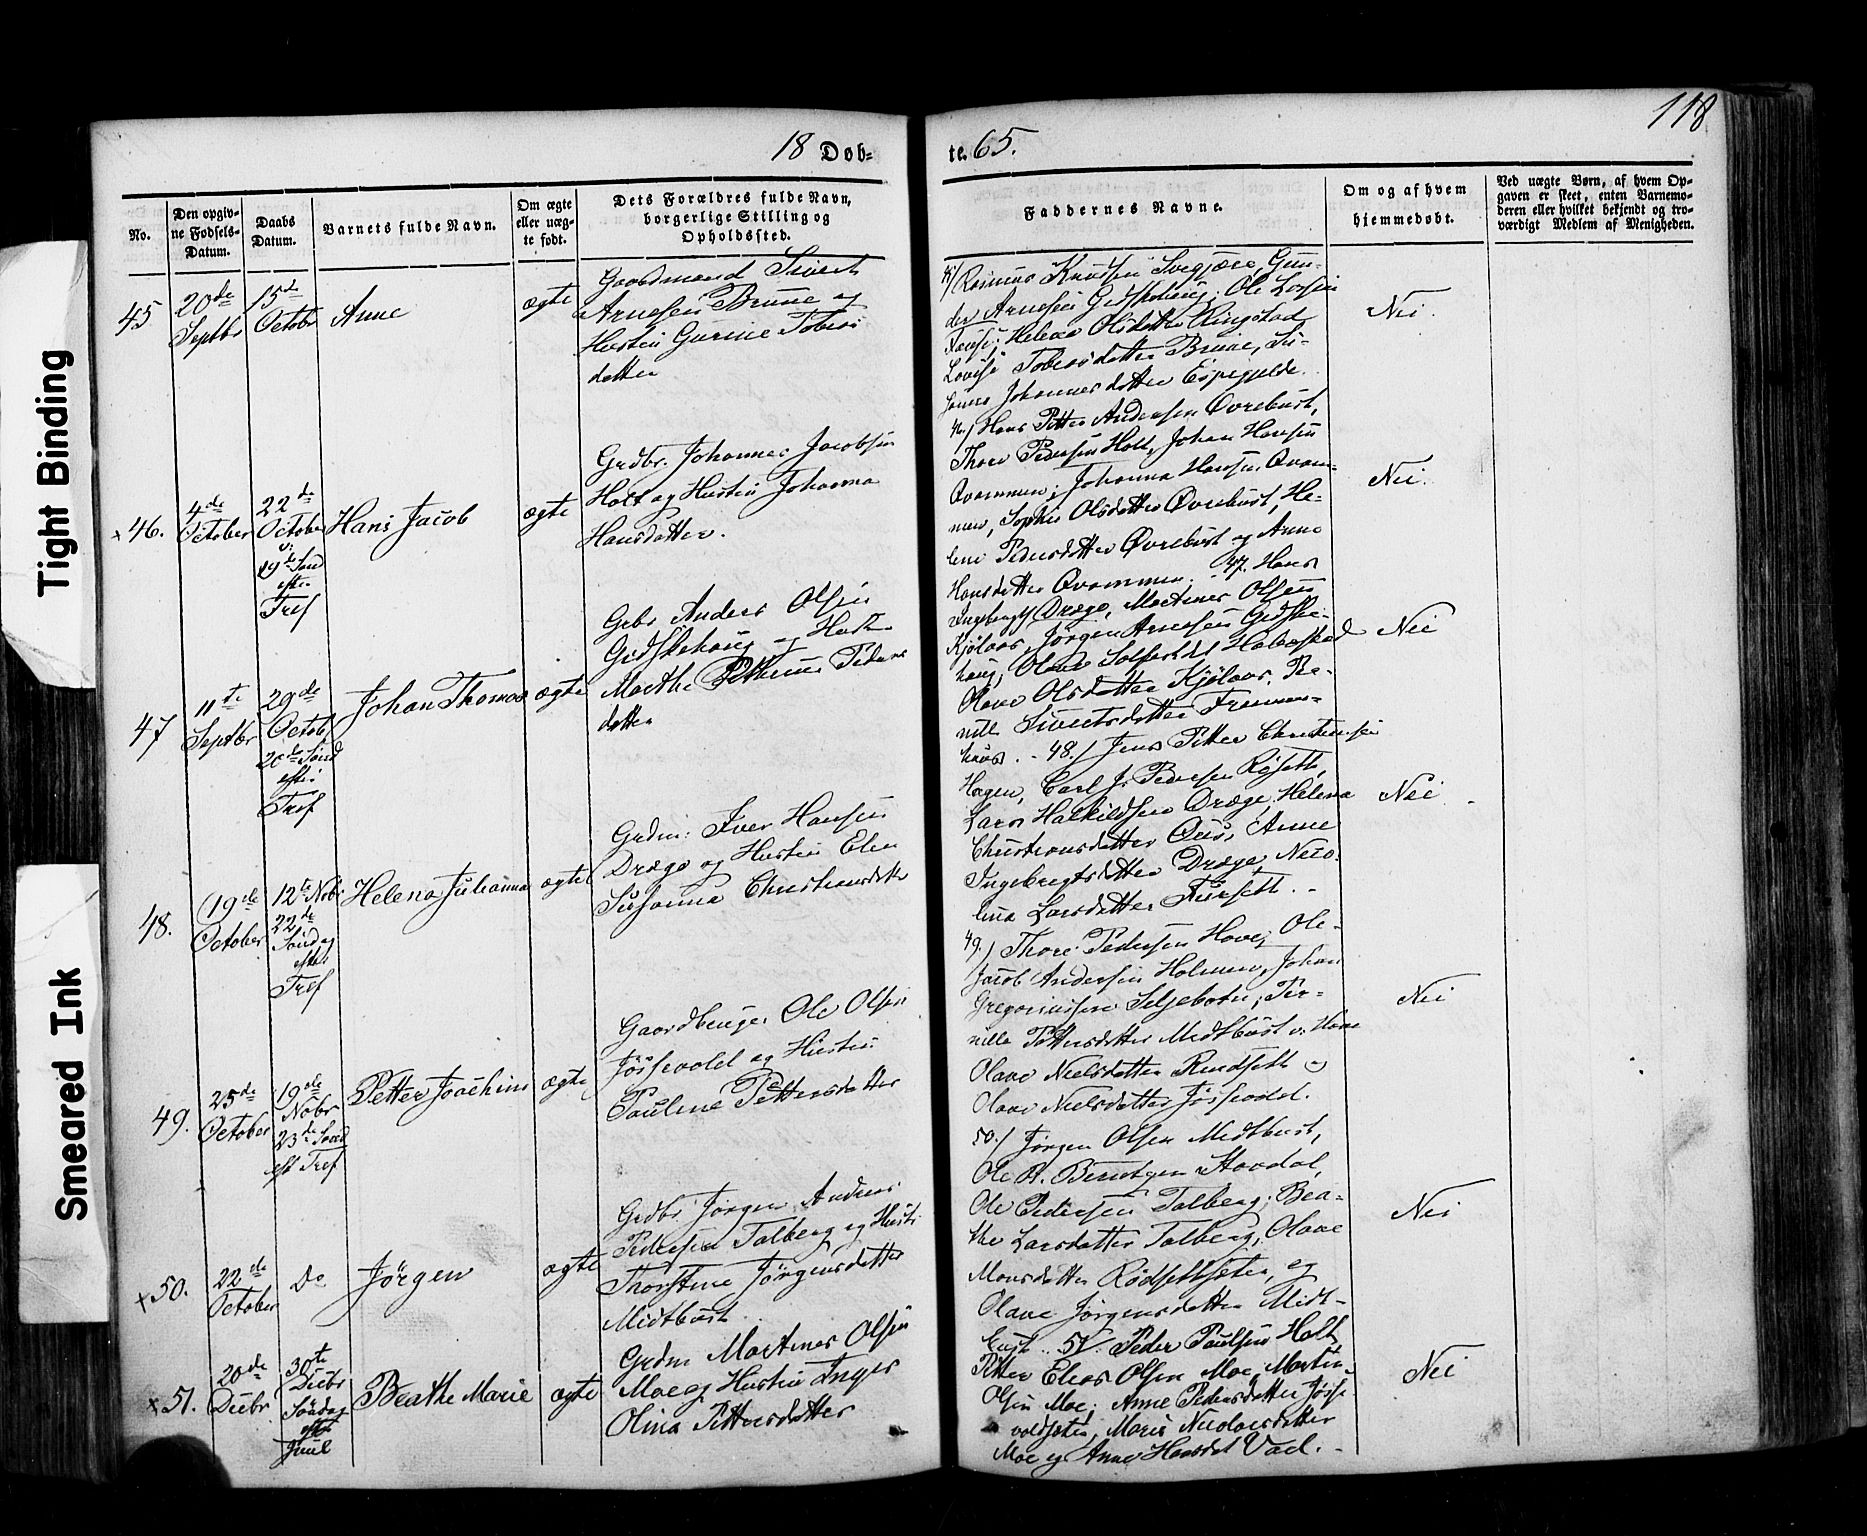 118
18 Døb=
te. 65.
No.
Den opgiv-
ne Fødsels-
Datum.
Daabs
Datum.
Barnets fulde Navn.
Om ægte
eller uæg-
te født.
Dets Forældres fulde Navn,
borgerlige Stilling og
Opholdssted.
Faddernes Navne.
Om og af hvem
hjemmedøbt.
Ved uægte Børn, af hvem Op-
gaven er skeet, enten Barnemo-
deren eller hvilket bekjendt og tro-
værdigt Medlem af Menigheden.
Tight Binding
Smeared Ink
45
20de
Septbr
15de
Octobr
Anne
ægte
Gaardmand Sivert
Arnesen Brune og
Hustru Gurine Tobias
datter
45/ Rasmus Knudsen
der Arnesen Gidskehoug; Ole
Helene Olsdatter Ringstad
Lovise Tobiasdatter Brune,
Johannesdatter
Nei.
x 46.
4de
October
22de
October
19de Sønd
efter
Tref
Hans Jacob
ægte
Grdbr. Johannes Jacobsen
Holt og Hustru Johanna
Hansdatter.
46./ Hans Petter Andersen Øvrebust,
Thore Pedersen Holt, Johan Hansen
Qvammen; Johanna Hansen Qvam-
men, Sophie Olsdatter Øvrebust, He-
lene Pedersdatter Øvrebust og Anne
Hansdatter Qvammen.
Nei.
47
11te
Septbr
29de
Octob
20de Sønd
efter
Tref
Johan Thomas
ægte
Grbr Anders Olsen
Gidskehoug og Hust.
Marthe Peders
datter
47. Hans
Drage, Martinus Olsen
Kjølaas, Jørgen Arnesen Gidske-
houg; Olave
Olave Olsdatter Kjølaas, Pe-
nille Sivertsdatter
Nei
48.
19de
October
12te Nobr
22de
Søndag
efter
Tref
Helena Julianna
ægte
Grdm: Iver Hansen
Drage og Hustru Elen
Susanna Christiansdatter
48./ Jens Petter Christensen
Hagen, Carl J. Pedersen
Lars Halkildsen Drage; Helena
Christiansdatter Anne
Ingebrigtsdatter Drage, Nico-
lina Larsdatter
Nei
49.
25de
October
19de
Nobr
23de Sønd
eft Tref
Petter Joachim
ægte
Ole Olsen
Jøssevold og Hustru
Pauline Pettersdatter
49./ Thore Pedersen Hove; Ole
Jacob Andersen Holmen, Johan
Gregoriussen Seljebotn; Per-
nille Pettersdatter Medtbust
Olave Nielsdatter Rindseth og
Olave Nielsdatter Jøssevold.
Nei
x 50.
22de
October
Do
Jørgen
ægte
Grdbr Jørgen Andreas
Pedersen Talberg og Hustr
Thorstine Jørgensdatter
Midtbust.
50./ Jørgen Olsen Midtbust,
Ole A. Berntsen
Ole Pedersen Talberg; Bea-
the Larsdatter Talberg, Olave
Monsdatter Rødsetsæter, og
Olave Jørgensdatter Midt-
bust.
Nei
x 51.
20de
Decbr
30te
Decbr
Søndag
efter
Juul
Beathe Marie
ægte
Grdm Martinus Olsen
Moe og Hustru Inger
Olina Pettersdatter
51/ Peder Paulsen Holt
Petter Elias Olsen Moe, Martin
Olsen Moe; Anne Pedersdatter Jøsse-
voldsæter, Marie Nicolaisdatter
Moe og Anne Hansdat Vad. -
Nei